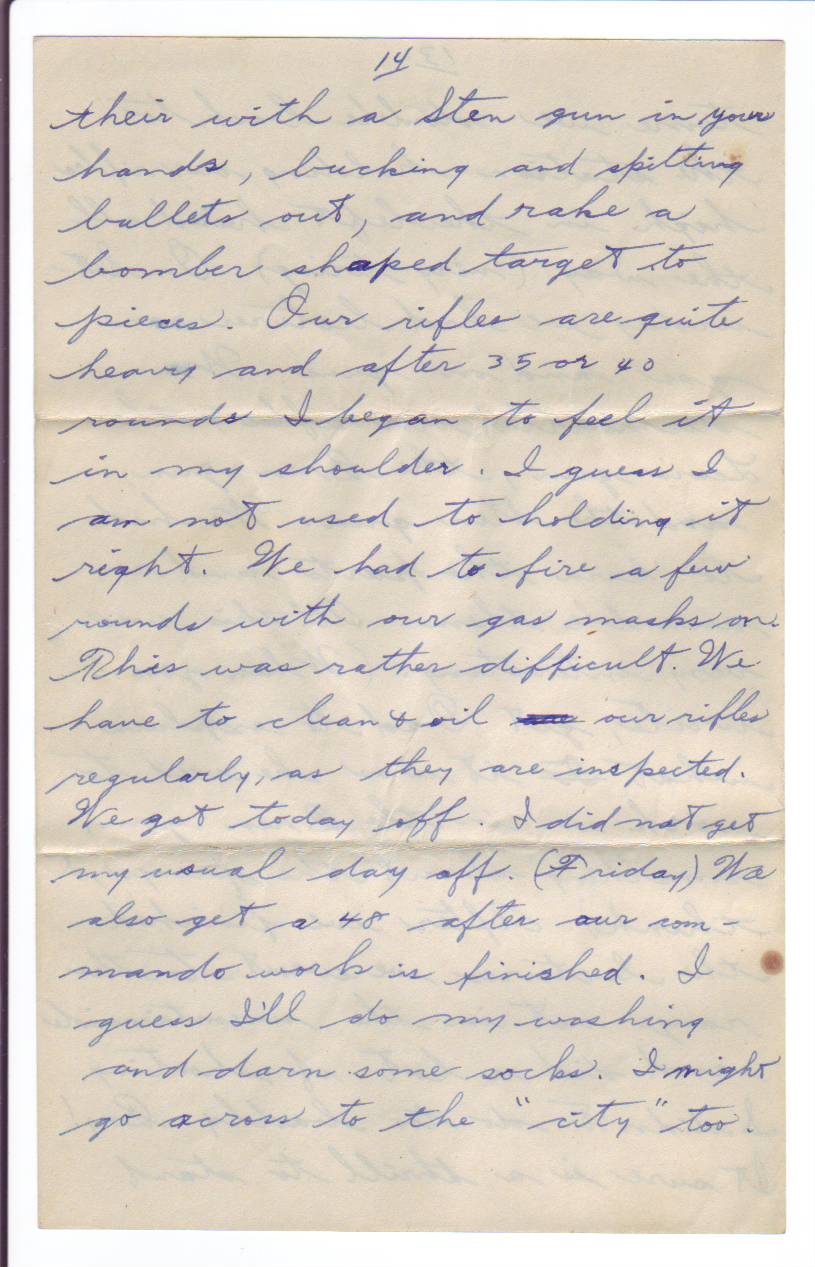 14
their with a Sten gun in your
hands, bucking and spitting
bullets out, and rake a
bomber shaped target to
pieces. Our rifles are quite
heavy and after 35 or 40
rounds I began to feel it
in my shoulder. I guess I
am not used to holding it
right. We had to fire a few
rounds with our gas masks on.
This was rather difficult. We
have to clean & oil our rifles
regularly, as they are inspected.
We got today off. I did not get
my usual day off. (Friday) We
also get a 48 after our com-
mando work is finished. I
guess I'll do my washing
and darn some socks. I might
go across to the "city" too.